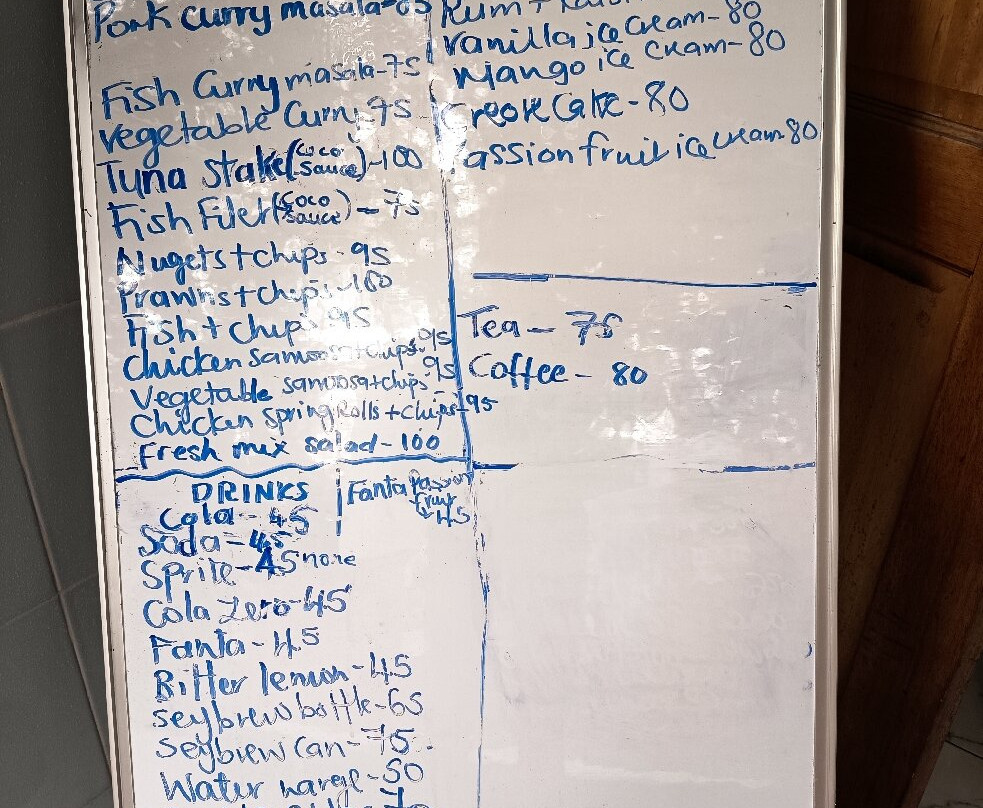 Pork curry masala-65
Fish Curry masala-75
Vegetable Curry-75
Tuna Stake(coco sauce)-100
Fish Filet(coco sauce)-75
Nugets+chips-95
Prawns+chips-100
Fish+chips 95
Chicken samoosa+chips-95
Vegetable samoosa+chips-95
Chicken Spring Rolls+chips-95
Fresh mix salad-100
Rum+
Vanilla ice cream-80
Mango ice cream-80
Creole Cake-80
Passion fruit ice cream 80
Tea-75
Coffee-80
DRINKS
Cola-45
Soda-45
Sprite-45 none
Cola Zero-45
Fanta-45
Bitter lemon-45
Seybrew bottle-65
Seybrew Can-75
Water large-50
Fanta Passion
fruit
45